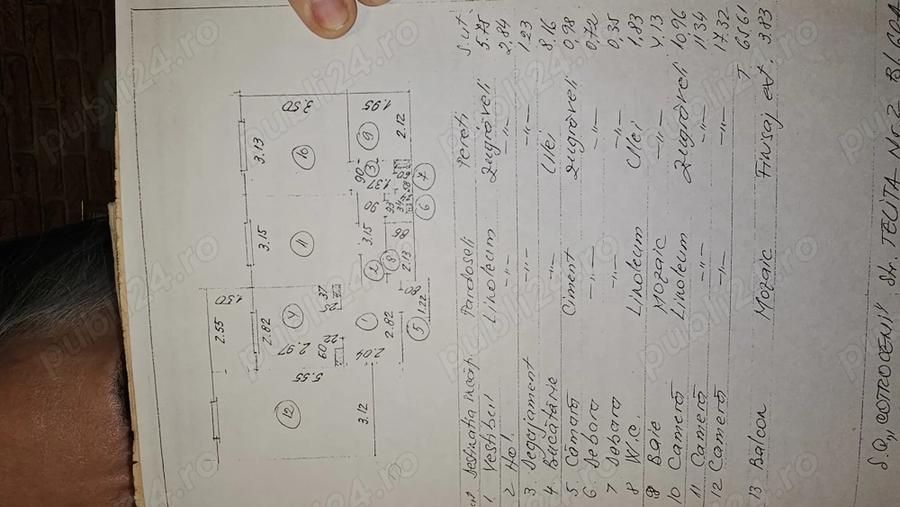 Destinatia încăp. Pardoseli Pereti S.ut
1 Vestibul Linoleum Zugrăveli 5.75
2 Hol -"- -"- 2,84
3. Degajament -"- -"- 1.23
4. Bucătărie -"- Ulei 8,16
5. Cămară Ciment Zugrăveli 0,98
6. Debara -"- -"- 0,72
7 Debara -"- -"- 0,35
8 W.C. Linoleum Ulei 1,83
9 Baie Mozaic -"- 4,13
10 Cameră Linoleum Zugrăveli 10,96
11 Cameră -"- -"- 11,34
12 Cameră -"- -"- 17.32
T 65,61
13 Balcon Mozaic Finisaj ext. 3.83
Str. TELITA Nr 2
2.55
1.50
3.13
3.50
3.15
2.82
10
11
4
12
5.55
2.97
.37
22
.60
3.12
2.04
1
2.82
5
1.22
80
2
3.15
8
2.13
86
90
1.37
90
3
9
1.95
2.12
6
7
publi24.ro